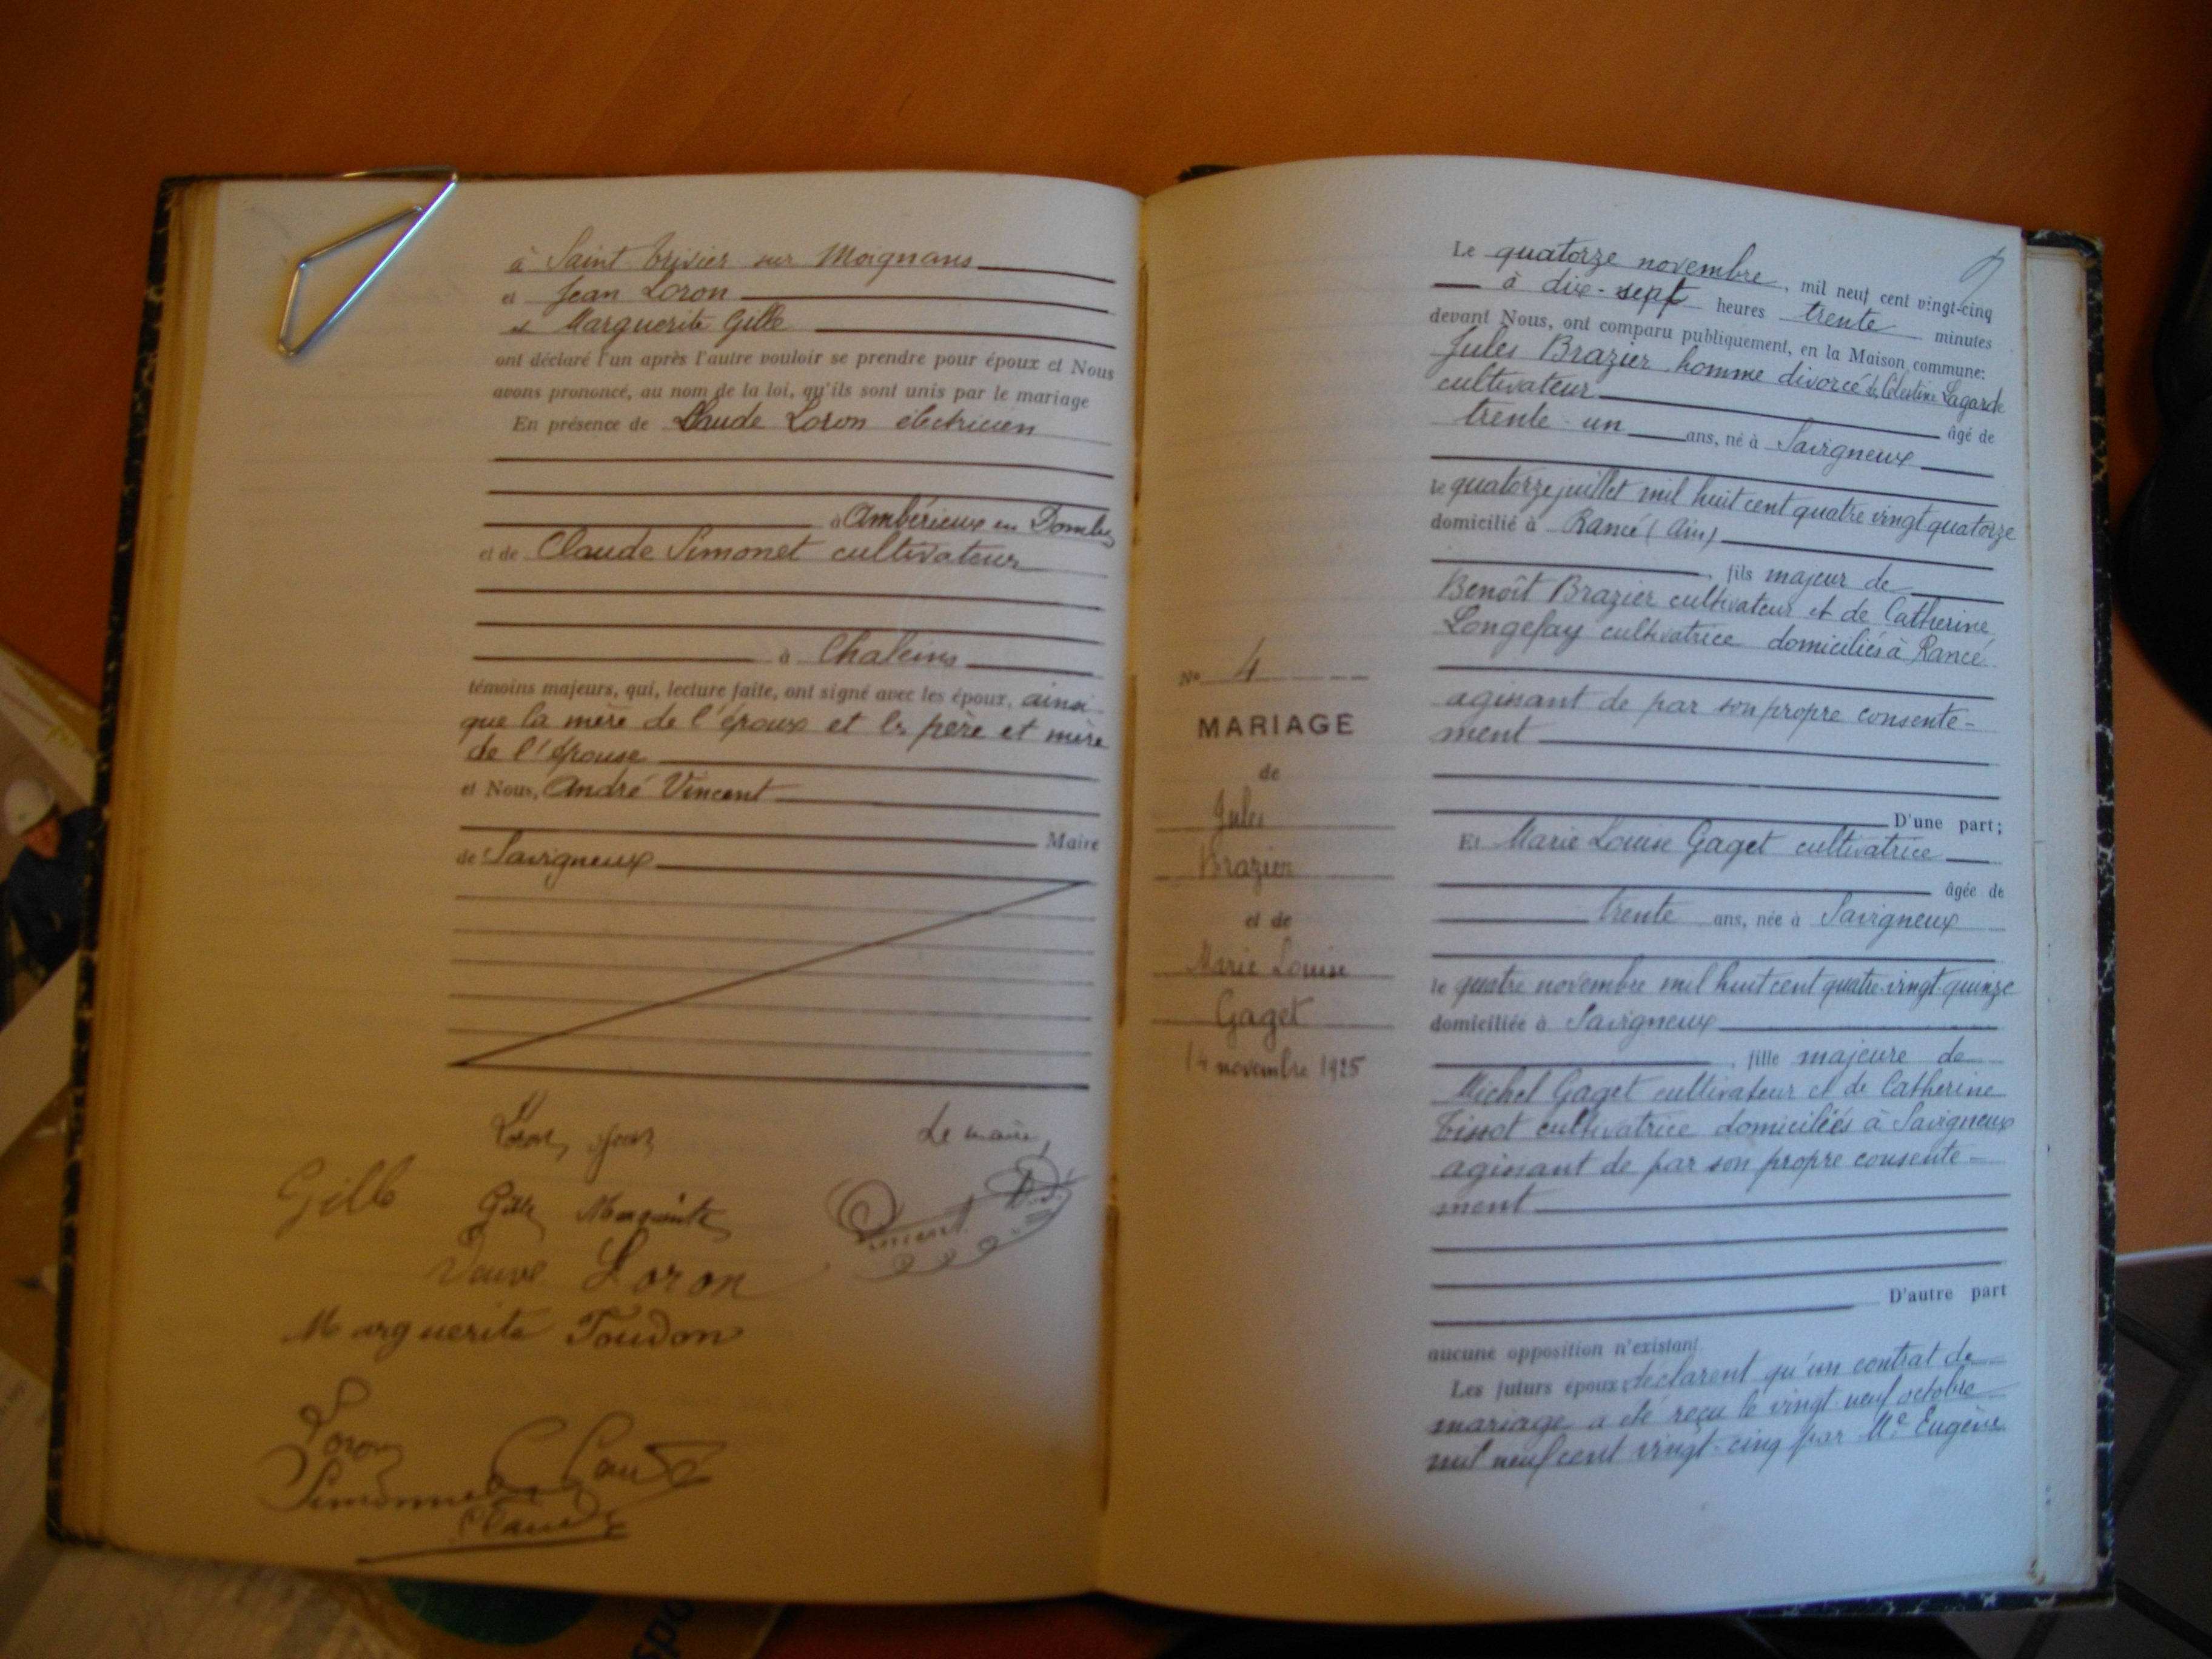 à Saint Trivier sur Moignans
et Jean Loron
et Marguerite Gille
ont déclaré l'un après l'autre vouloir se prendre pour époux et Nous
avons prononcé, au nom de la loi, qu'ils sont unis par le mariage
En présence de Claude Loron électricien
à Ambérieux en Dombes
et de Claude Simonet cultivateur
à Chaleins
témoins majeurs, qui, lecture faite, ont signé avec les époux, ainsi
que la mère de l'époux et les père et mère
de l'épouse
et Nous, André Vincent
Maire
de Savigneux
Loron Jean
Le maire,
Gille
Gille Marguerite
Vincent
Veuve Loron
Marguerite Toudon
Loron Claude
Simonnet
Claude
N° 4
MARIAGE
de
Jules
Brazier
et de
Marie Louise
Gaget
14 novembre 1925
Le quatorze novembre, mil neuf cent vingt-cinq
à dix-sept heures trente minutes
devant Nous, ont comparu publiquement, en la Maison commune:
Jules Brazier, homme divorcé de Célestine Lagarde
cultivateur âgé de
trente-un ans, né à Savigneux
le quatorze juillet mil huit cent quatre vingt quatorze
domicilié à Rancé (Ain)
, fils majeur de
Benoît Brazier cultivateur et de Catherine
Longefay cultivatrice domiciliés à Rancé
agissant de par son propre consente-
ment
D'une part;
Et Marie Louise Gaget cultivatrice
âgée de
trente ans, née à Savigneux
le quatre novembre mil huit cent quatre-vingt-quinze
domiciliée à Savigneux
, fille majeure de
Michel Gaget cultivateur et de Catherine
Tissot cultivatrice domiciliés à Savigneux
agissant de par son propre consente-
ment
D'autre part
aucune opposition n'existant.
Les futurs époux déclarent qu'un contrat de
mariage a été reçu le vingt-neuf octobre
mil neuf cent vingt-cinq par Me Eugène